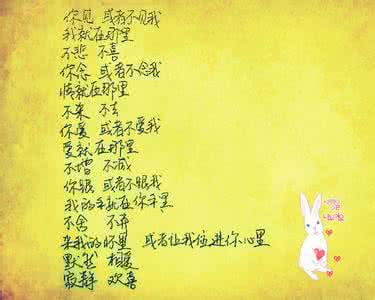 你见 或者不见我
我就在那里
不悲 不喜
你念 或者不念我
情就在那里
不来 不去
你爱 或者不爱我
爱就在那里
不增 不减
你跟 或者不跟我
我的手就在你手里
不舍 不弃
来我的怀里 或者让我住进你心里
默然 相爱
寂静 欢喜